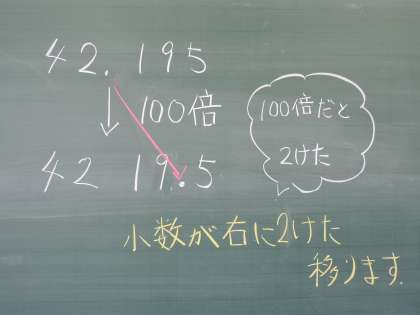 42.195
100倍
42 19.5
100倍だと
2けた
小数が右に2けた
移ります.